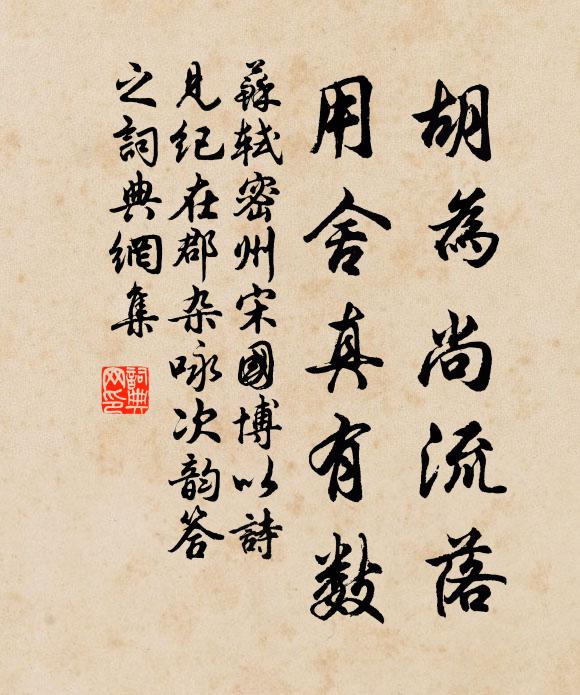 胡為尚流落
用舍真有數
蘇軾密州宋國博以詩
見紀在郡杂咏次韵答
之詞典網集
詞典
网印